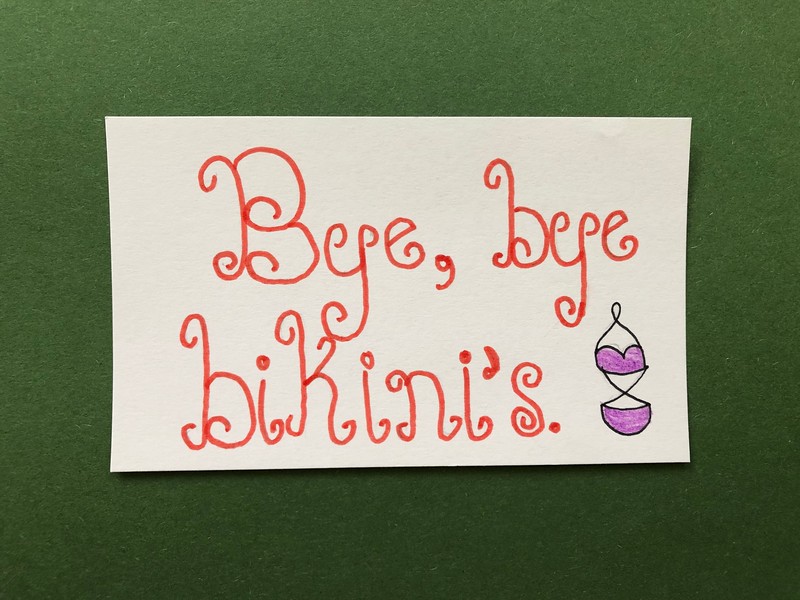 Bye, bye
bikini's.